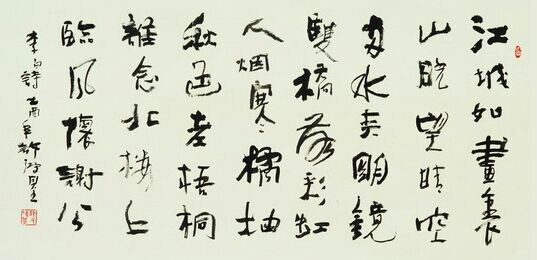 江城如畫裏
山晚望晴空
兩水夾明鏡
雙橋落彩虹
人烟寒橘柚
秋色老梧桐
誰念北樓上
臨風懷謝公
李白詩 乙酉年 許